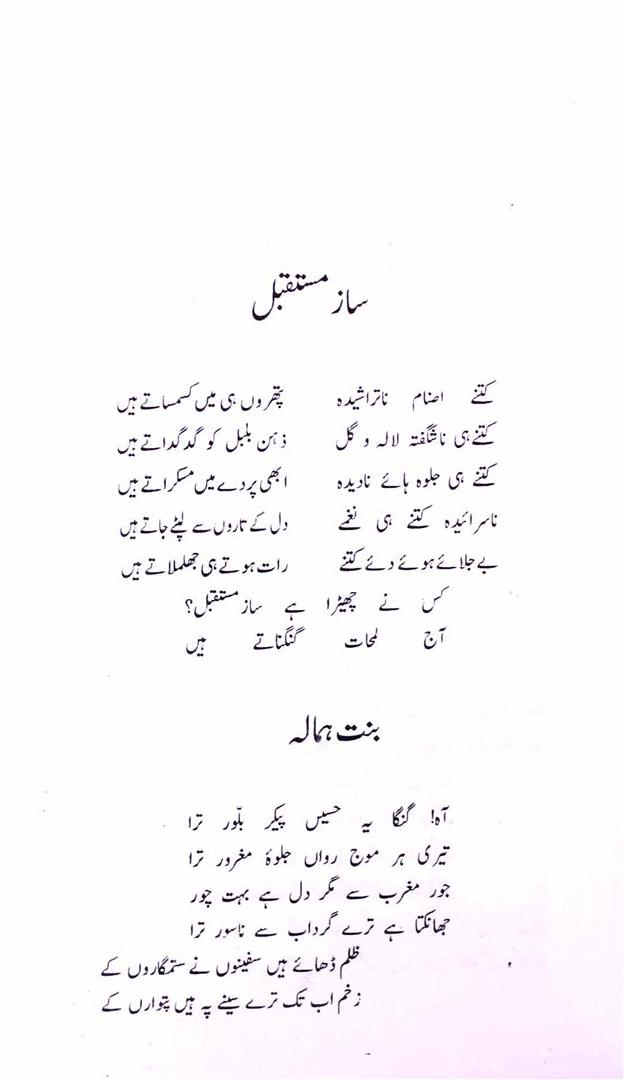 ساز مستقبل
کتنے اصنام ناتراشیدہ پتھروں ہی میں کسمساتے ہیں
کتنے ہی ناشگفتہ لالہ و گل ذہن بلبل کو گدگداتے ہیں
کتنے ہی جلوہ ہائے نادیدہ ابھی پردے میں مسکراتے ہیں
ناسرائیدہ کتنے ہی نغمے دل کے تاروں سے لپٹے جاتے ہیں
بے جلائے ہوئے دئے کتنے رات ہوتے ہی جھلملاتے ہیں
کس نے چھیڑا ہے ساز مستقبل؟
آج لمحات گنگناتے ہیں
بنت ہمالہ
آہ! گنگا یہ حسیں پیکر بلّور ترا
تیری ہر موج رواں جلوۂ مغرور ترا
جور مغرب سے مگر دل ہے بہت چور
جھانکتا ہے ترے گرداب سے ناسور ترا
ظلم ڈھائے ہیں سفینوں نے ستمگاروں کے
زخم اب تک ترے سینے پہ ہیں پتوارں کے